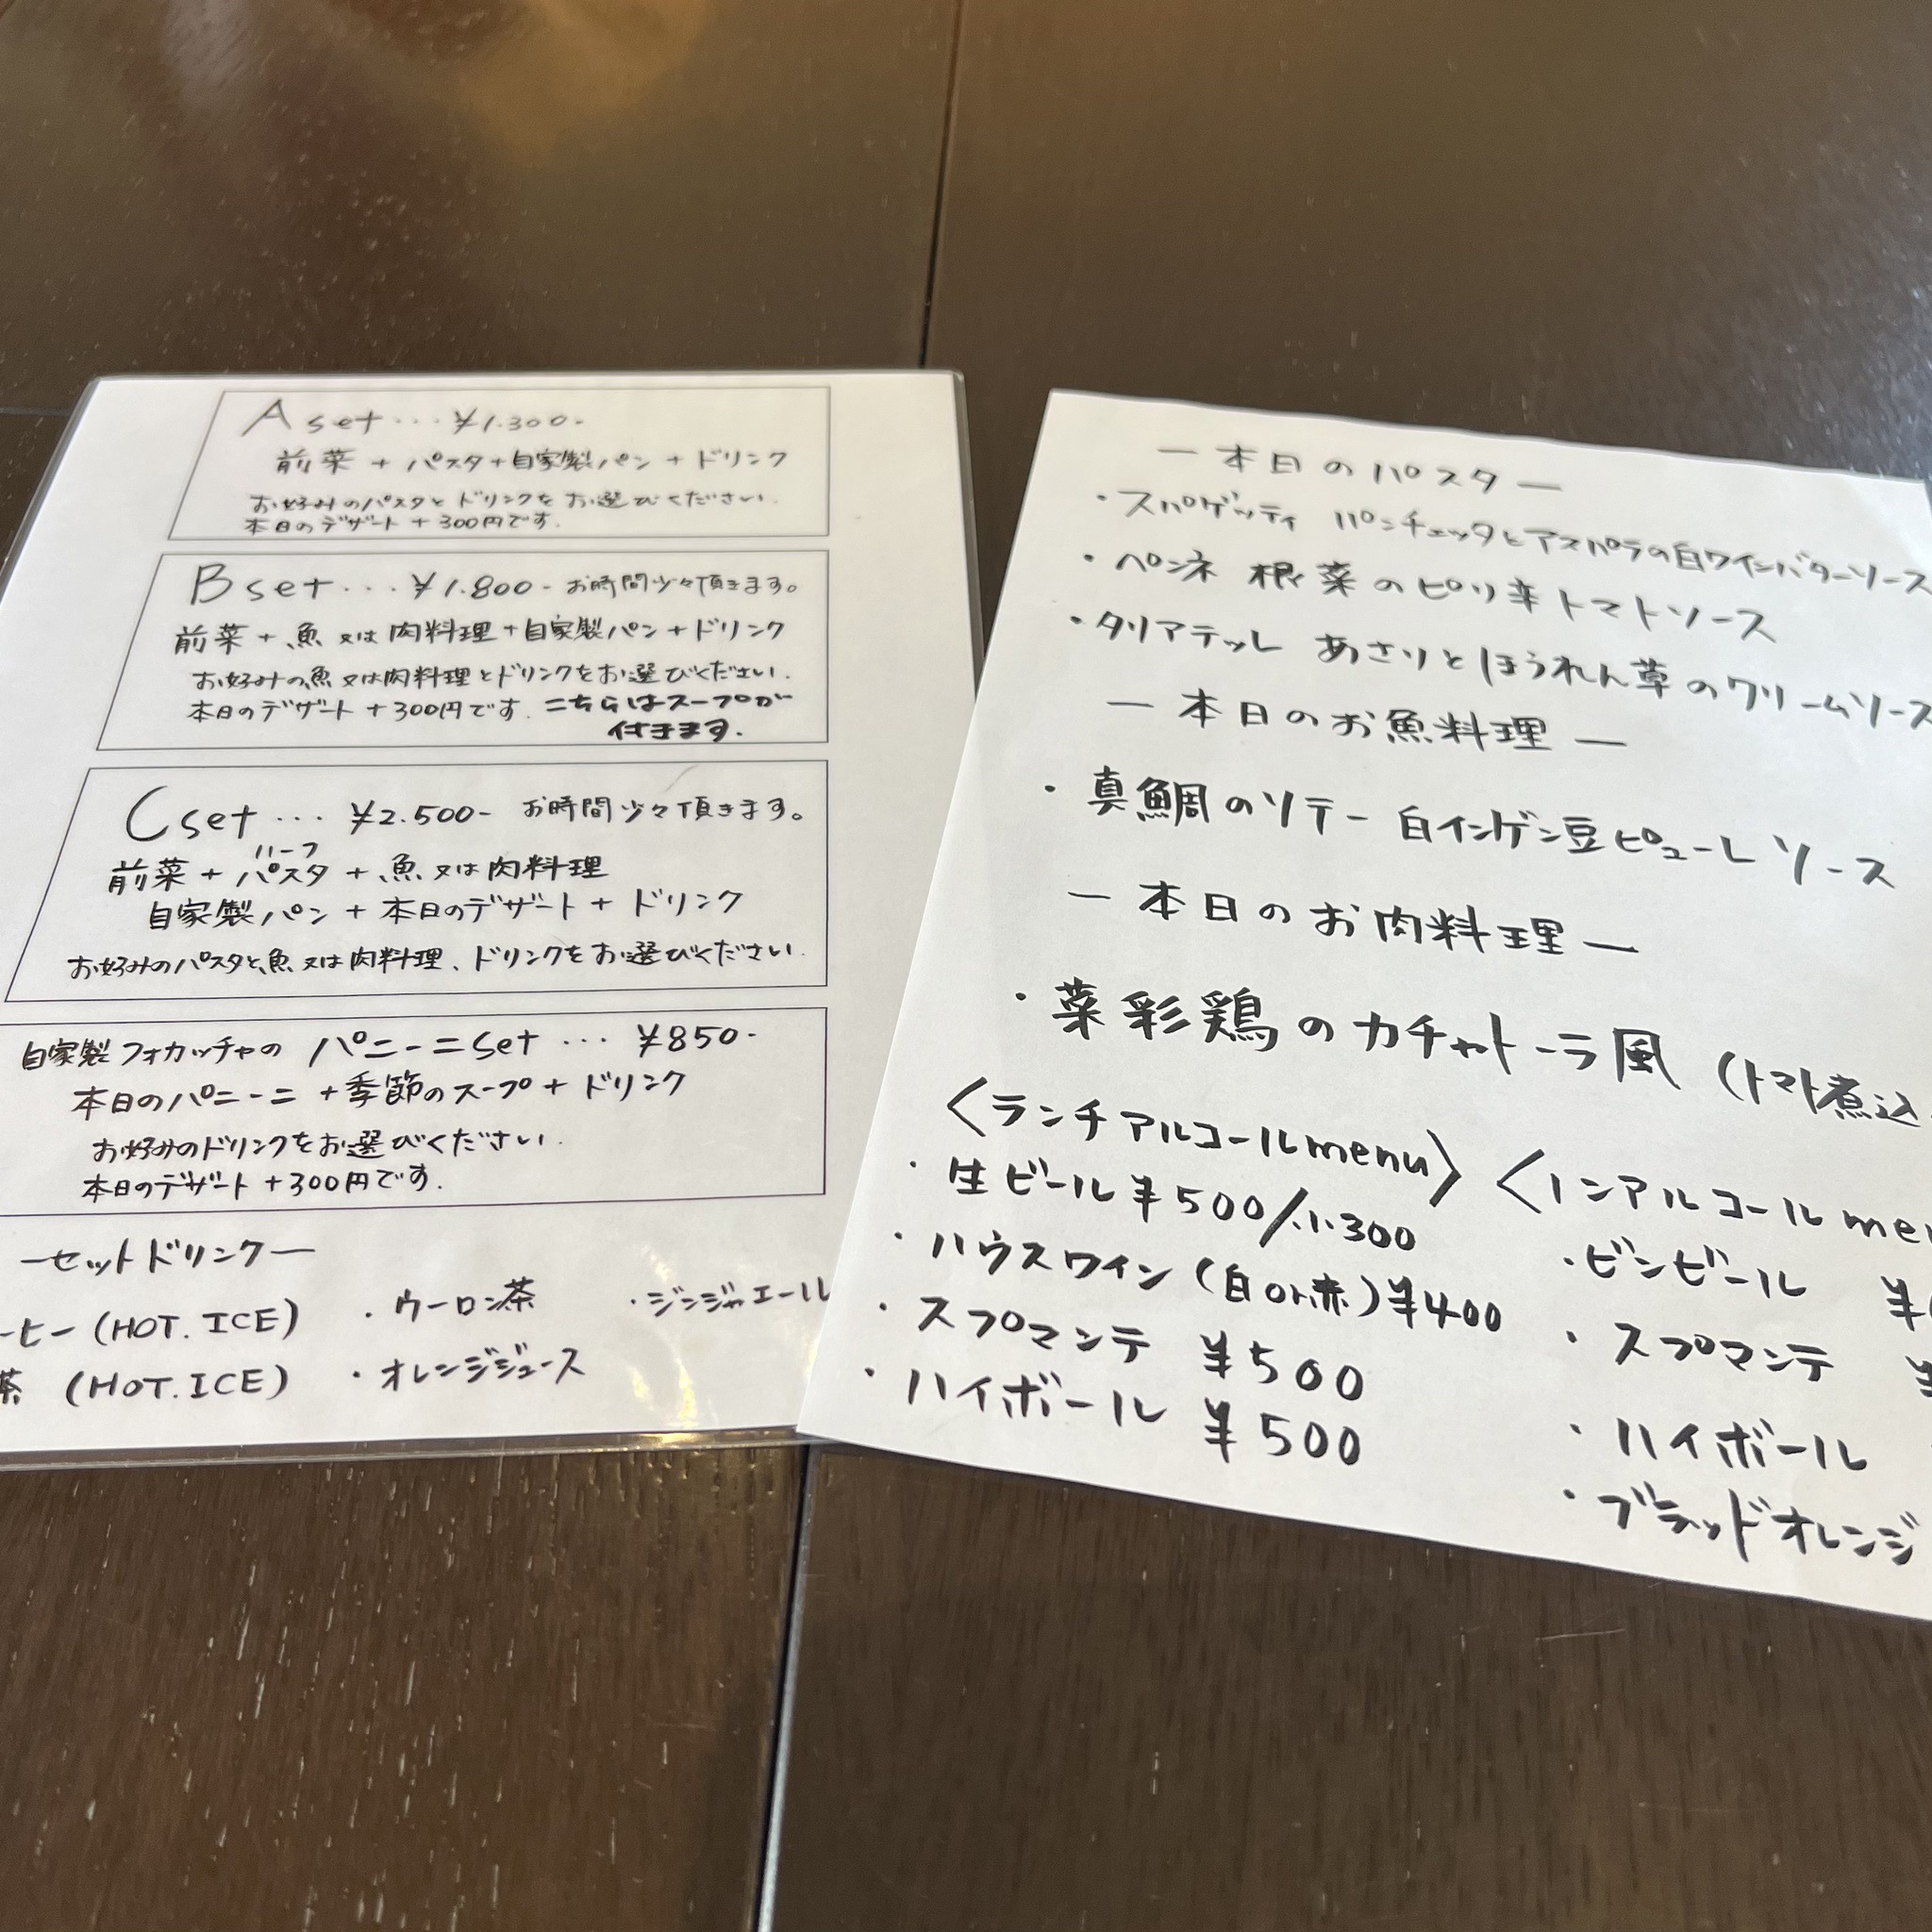 A set ... ¥1.300-
前菜 + パスタ+自家製パン + ドリンク
お好みのパスタと ドリンクを お選びください.
本日のデザート + 300円です.
B set ... ¥1.800- お時間少々頂きます。
前菜 + 魚 又は 肉料理 + 自家製パン + ドリンク
お好みの魚又は肉料理とドリンクをお選びください.
本日のデザート + 300円です. こちらはスープが
付きます.
C set ... ¥2.500- お時間少々頂きます。
ハーフ
前菜 + パスタ + 魚 又は 肉料理
自家製パン + 本日のデザート + ドリンク
お好みのパスタと魚又は肉料理、ドリンクをお選びください.
自家製フォカッチャの パニーニset ... ¥850-
本日のパニーニ + 季節のスープ + ドリンク
お好みのドリンクをお選びください.
本日のデザート +300円です.
―セットドリンク―
ーヒー (HOT. ICE) ・ウーロン茶 ・ジンジャエール
茶 (HOT. ICE) ・オレンジジュース
― 本日のパスタ ―
・スパゲッティ パンチェッタとアスパラの白ワインバターソース
・ペンネ 根菜のピリ辛トマトソース
・タリアテッレ あさりとほうれん草のクリームソース
― 本日のお魚料理 ―
・真鯛のソテー 白インゲン豆ピューレソース
― 本日のお肉料理 ―
・菜彩鶏のカチャトーラ風 (トマト煮込
〈ランチアルコールmenu〉
・生ビール ¥500/小300
・ハウスワイン (白or赤) ¥400
・スプマンテ ¥500
・ハイボール ¥500
〈ノンアルコール men
・ビンビール ¥
・スプマンテ ¥
・ハイボール
・ブラッドオレンジ